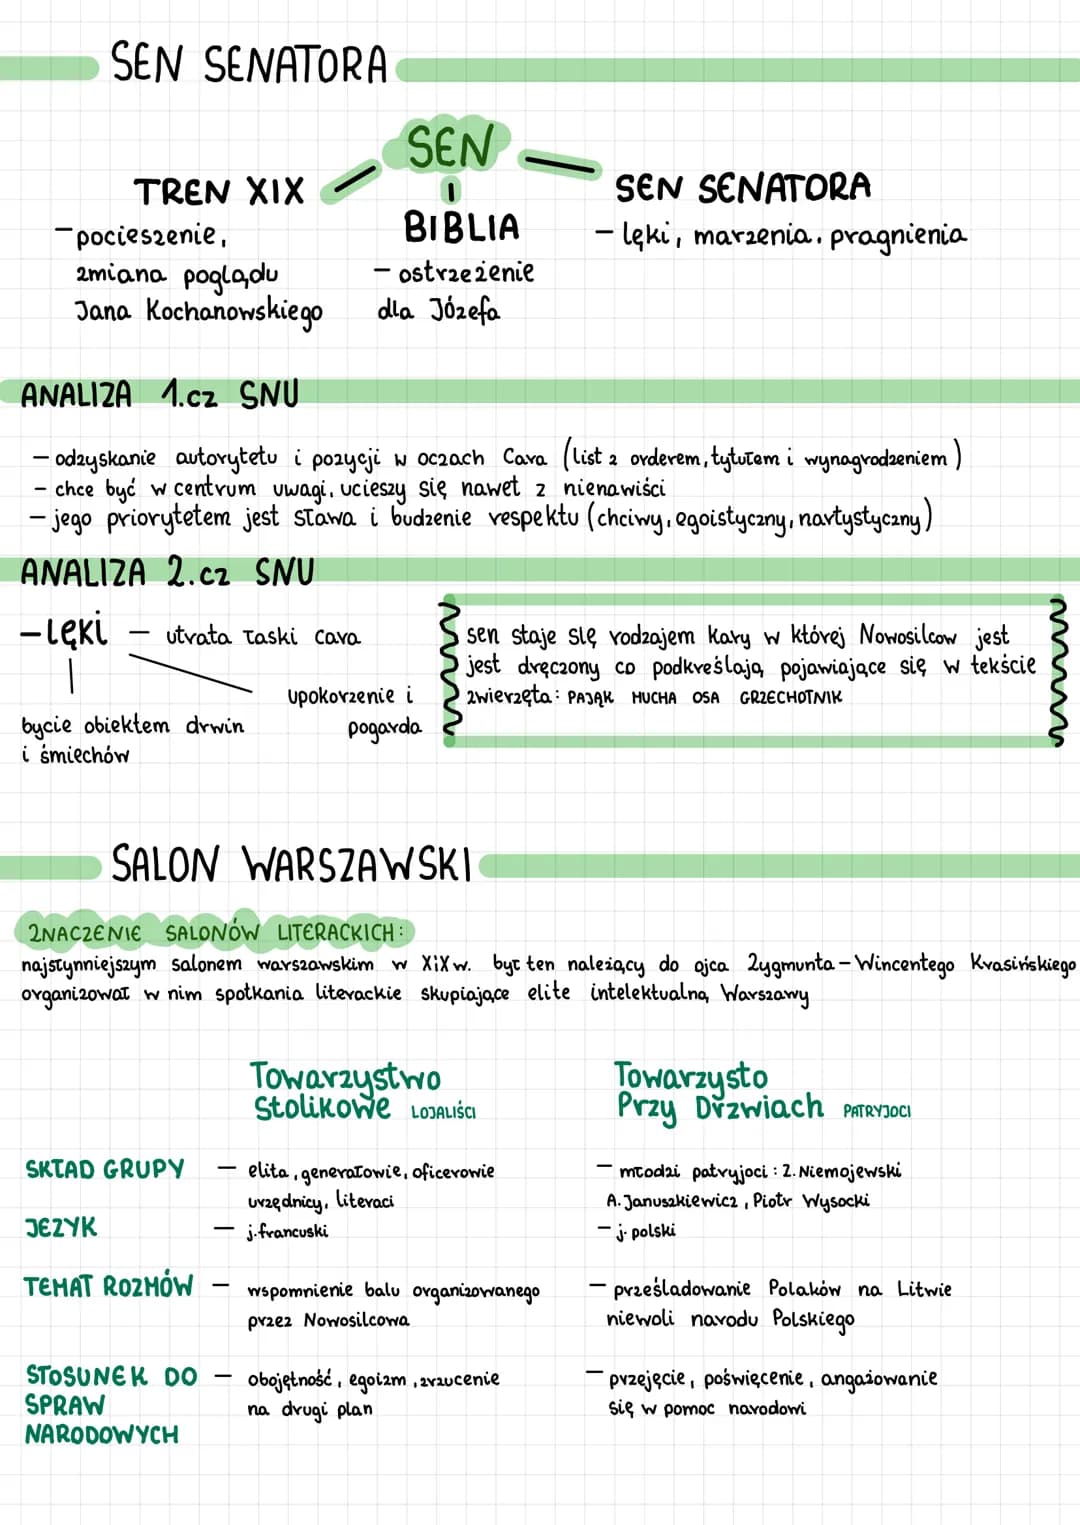 SEN SENATORA
SEN
TREN XIX
- pocieszenie,
zmiana poglądu
Jana Kochanowskiego
BIBLIA
- ostrzeżenie
dla Józefa
SEN SENATORA
- lęki, marzenia, pragnienia
ANALIZA 1.cz SNU
- odzyskanie autorytetu i pozycji w oczach Cara (list z orderem, tytułem i wynagrodzeniem)
- chce być w centrum uwagi, ucieszy się nawet z nienawiści
- jego priorytetem jest sława i budzenie respektu (chciwy, egoistyczny, nartystyczny)
ANALIZA 2.cz SNU
- lęki - utrata łaski cara
upokorzenie i
pogarda
bycie obiektem drwin
i śmiechów
sen staje się rodzajem kary w której Nowosilcow jest
jest dręczony co podkreślają pojawiające się w tekście
zwierzęta: PAJĄK MUCHA OSA GRZECHOTNIK
SALON WARSZAWSKI
ZNACZENIE SALONÓW LITERACKICH:
najsłynniejszym salonem warszawskim w XIX w. był ten należący do ojca Zygmunta - Wincentego Krasińskiego
organizował w nim spotkania literackie skupiające elite intelektualną Warszawy
Towarzystwo
Stolikowe LOJALIŚCI
Towarzysto
Przy Drzwiach PATRYJOCI
SKŁAD GRUPY - elita, generałowie, oficerowie
urzędnicy, literaci
- młodzi patryjoci: Z. Niemojewski
A. Januszkiewicz, Piotr Wysocki
JEZYK - j. francuski
- j. polski
TEMAT ROZMÓW - wspomnienie balu organizowanego
przez Nowosilcowa
- prześladowanie Polaków na Litwie
niewoli narodu Polskiego
STOSUNEK DO
SPRAW
NARODOWYCH
- obojętność, egoizm, zrzucenie
na drugi plan
- przejęcie, poświęcenie, angażowanie
się w pomoc narodowi